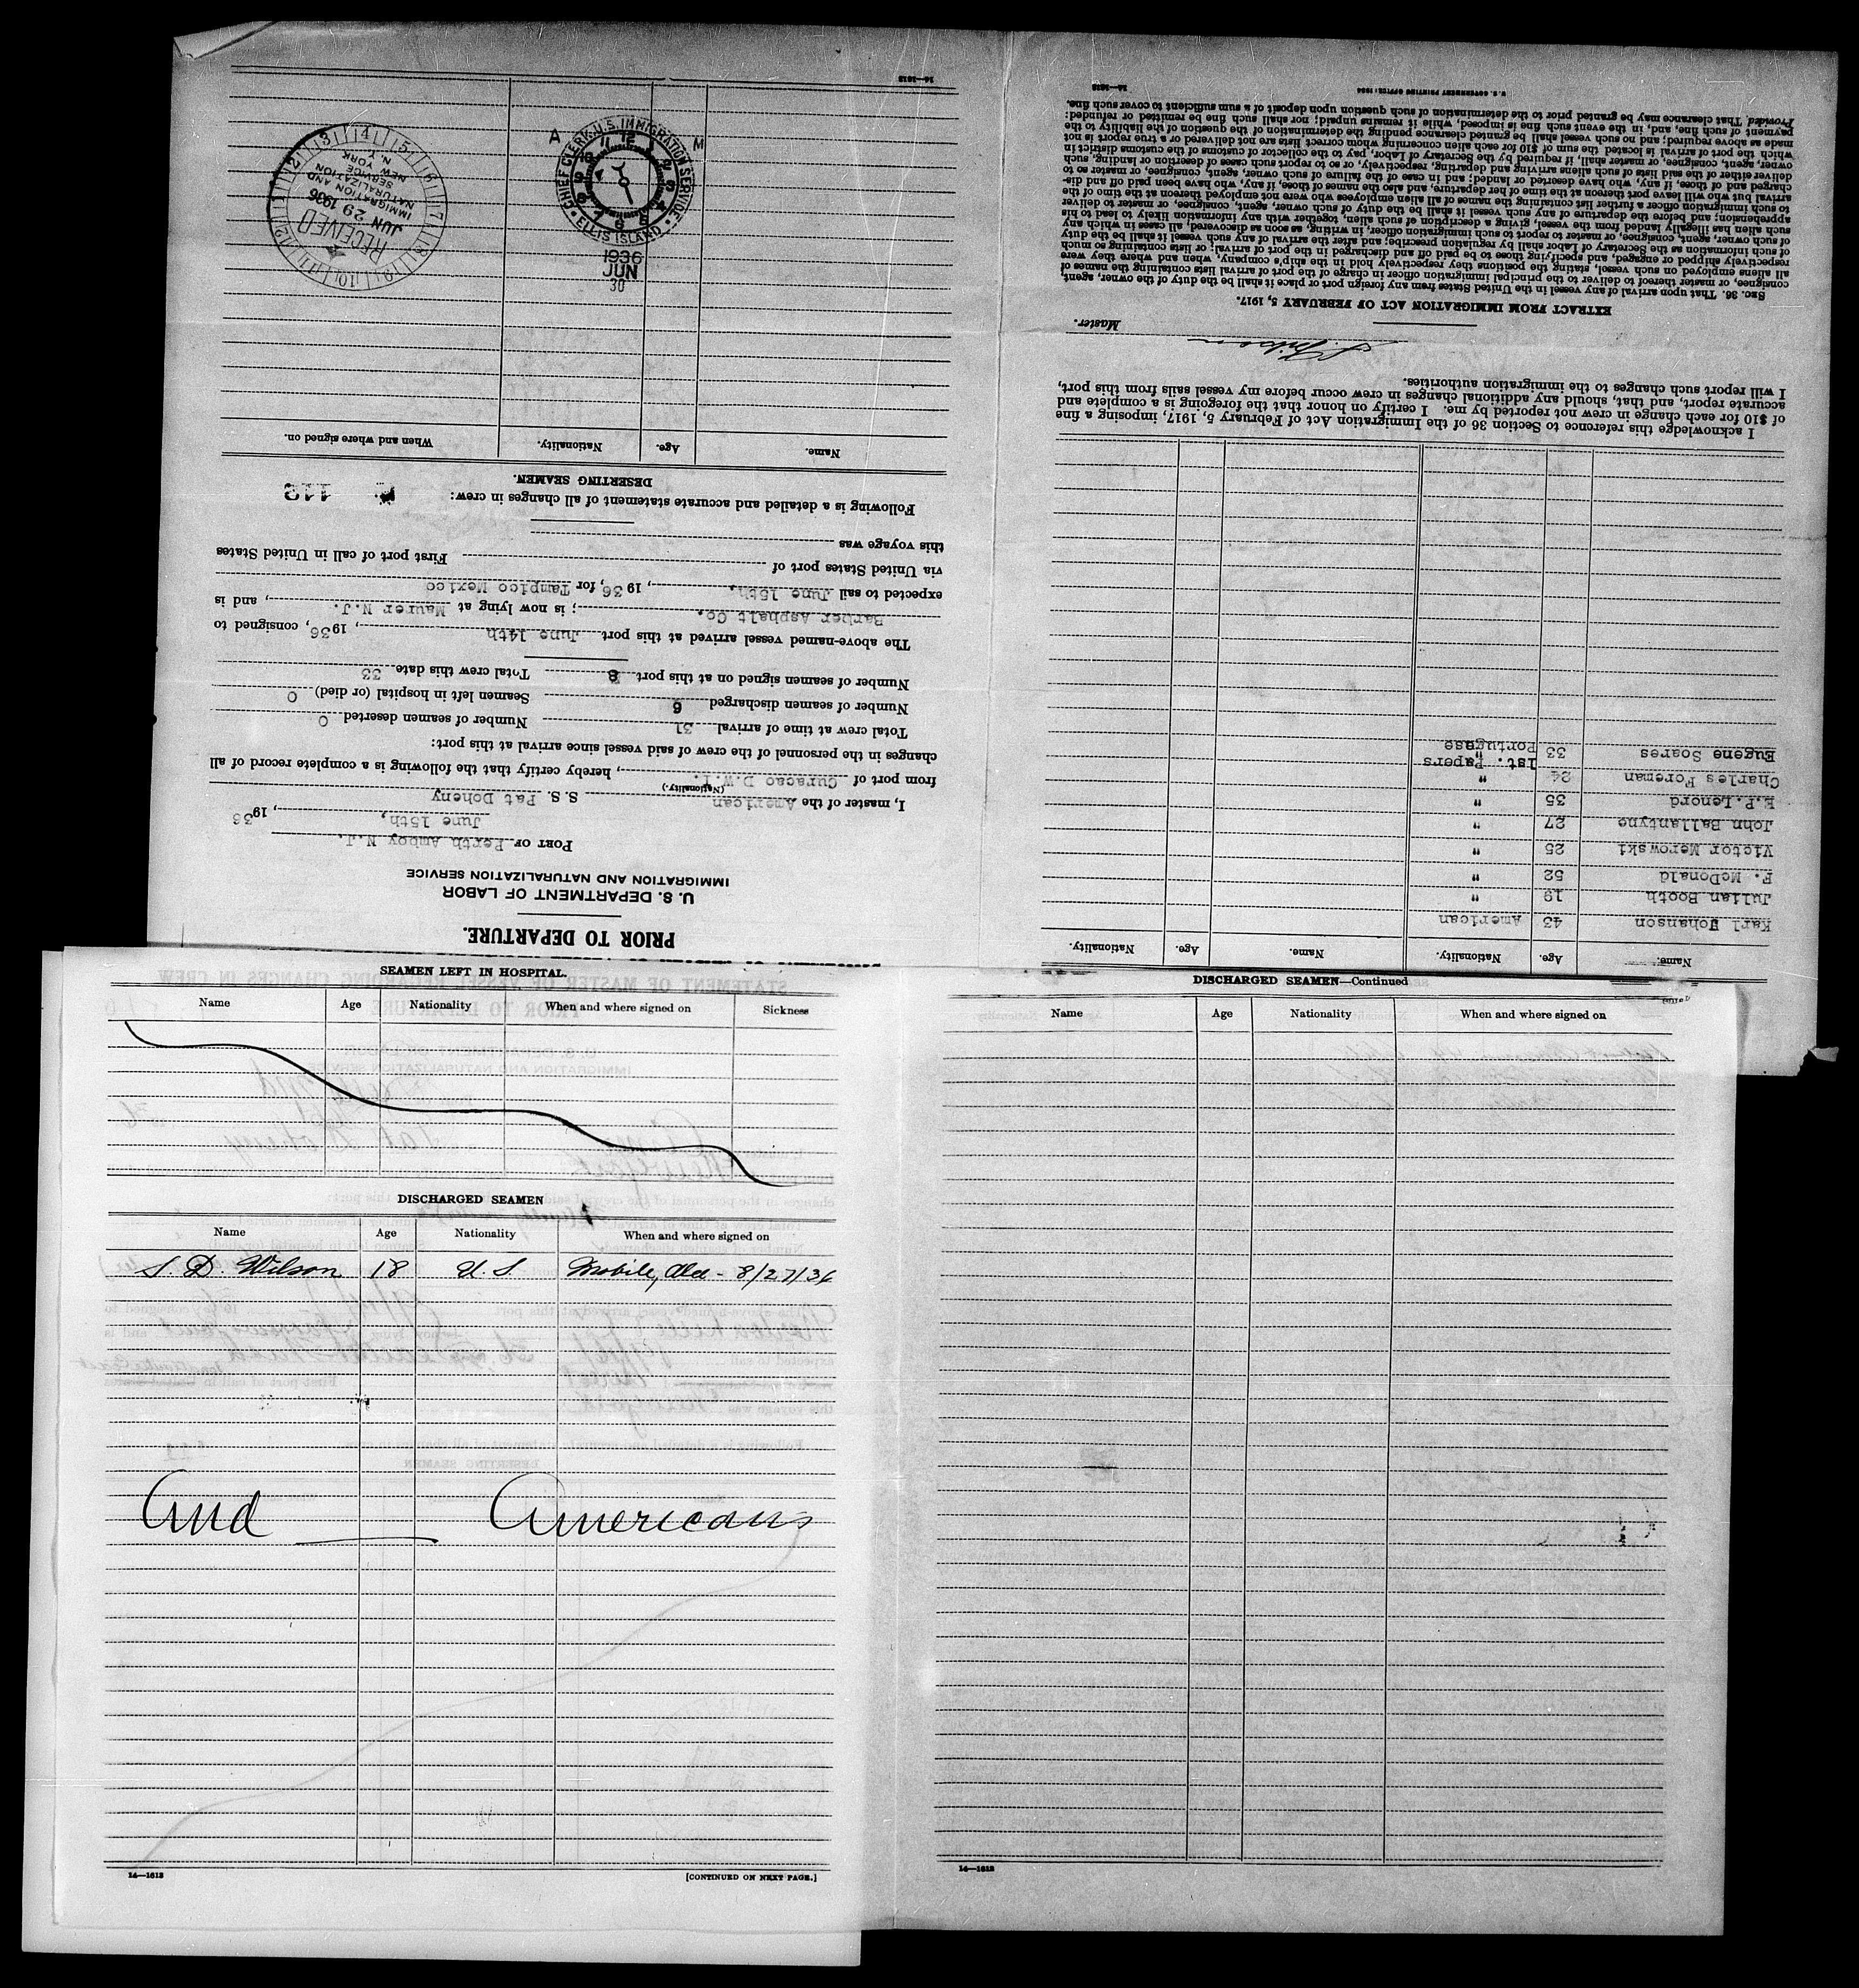 PRIOR TO DEPARTURE.
U. S. DEPARTMENT OF LABOR
IMMIGRATION AND NATURALIZATION SERVICE
PORT OF Perth Amboy N.J.
June 15th, , 1936
I, master of the American S.S. Pat Doheny
(Nationality.)
from port of Curacao D.W.I. , hereby certify that the following is a complete record of all
changes in the personnel of the crew of said vessel since arrival at this port:
Total crew at time of arrival 31 Number of seamen deserted 0
Number of seamen discharged 6 Seamen left in hospital (or died) 0
Number of seamen signed on at this port 8 Total crew this date 33
The above-named vessel arrived at this port June 14th , 1936, consigned to
Barber Asphalt Co. ; is now lying at Maurer N.J. , and is
expected to sail June 15th, , 1936, for Tampico Mexico
via United States port of First port of call in United States
this voyage was
Following is a detailed and accurate statement of all changes in crew: 113
DESERTING SEAMEN.
Name. Age. Nationality. When and where signed on.
CHIEF CLERK U. S. IMMIGRATION SERVICE
ELLIS ISLAND
A M
1936
JUN
30
RECEIVED
JUN 29 1936
IMMIGRATION AND
NATURALIZATION
SERVICE
NEW YORK
N. Y.
14—1613
Name. Age. Nationality. Name. Age. Nationality.
Karl Johanson 43 American
Julian Booth 19 "
F. McDonald 52 "
Victor Merowski 25 "
John Ballantyne 27 "
E.P. Lenord 35 "
Charles Foreman 24 "
1st. Papers
Eugene Soares 33 Portugese
I acknowledge this reference to Section 36 of the Immigration Act of February 5, 1917, imposing a fine
of $10 for each change in crew not reported by me. I certify on honor that the foregoing is a complete and
accurate report, and that, should any additional changes in crew occur before my vessel sails from this port,
I will report such changes to the immigration authorities.
Master.
EXTRACT FROM IMMIGRATION ACT OF FEBRUARY 5, 1917.
SEC. 36. That upon arrival of any vessel in the United States from any foreign port or place it shall be the duty of the owner, agent,
consignee, or master thereof to deliver to the principal immigration officer in charge of the port of arrival lists containing the names of
all aliens employed on such vessel, stating the positions they respectively hold in the ship's company, when and where they were
respectively shipped or engaged, and specifying those to be paid off and discharged in the port of arrival; or lists containing so much
of such information as the Secretary of Labor shall by regulation prescribe; and after the arrival of any such vessel it shall be the duty
of such owner, agent, consignee, or master to report to such immigration officer, in writing, as soon as discovered, all cases in which any
such alien has illegally landed from the vessel, giving a description of such alien, together with any information likely to lead to his
apprehension; and before the departure of any such vessel it shall be the duty of such owner, agent, consignee, or master to deliver
to such immigration officer a further list containing the names of all alien employees who were not employed thereon at the time of the
arrival but who will leave port thereon at the time of her departure, and also the names of those, if any, who have been paid off and dis-
charged and of those, if any, who have deserted or landed; and in case of the failure of such owner, agent, consignee, or master to
deliver either of the said lists of such aliens arriving and departing, respectively, or so to report such cases of desertion or landing, such
owner, agent, consignee, or master shall, if required by the Secretary of Labor, pay to the collector of customs of the customs district in
which the port of arrival is located the sum of $10 for each alien concerning whom correct lists are not delivered or a true report is not
made as above required; and no such vessel shall be granted clearance pending the determination of the question of the liability to the
payment of such fine, and, in the event such fine is imposed, while it remains unpaid; nor shall such fine be remitted or refunded:
Provided, That clearance may be granted prior to the determination of such question upon deposit of a sum sufficient to cover such fine.
14—1613 U. S. GOVERNMENT PRINTING OFFICE: 1934
SEAMEN LEFT IN HOSPITAL.
Name Age Nationality When and where signed on Sickness
DISCHARGED SEAMEN
Name Age Nationality When and where signed on
S. D. Wilson 18 U. S. Mobile, Ala - 8/27/36
And Americans
14—1613 [CONTINUED ON NEXT PAGE.]
DISCHARGED SEAMEN—Continued
Name Age Nationality When and where signed on
14—1613